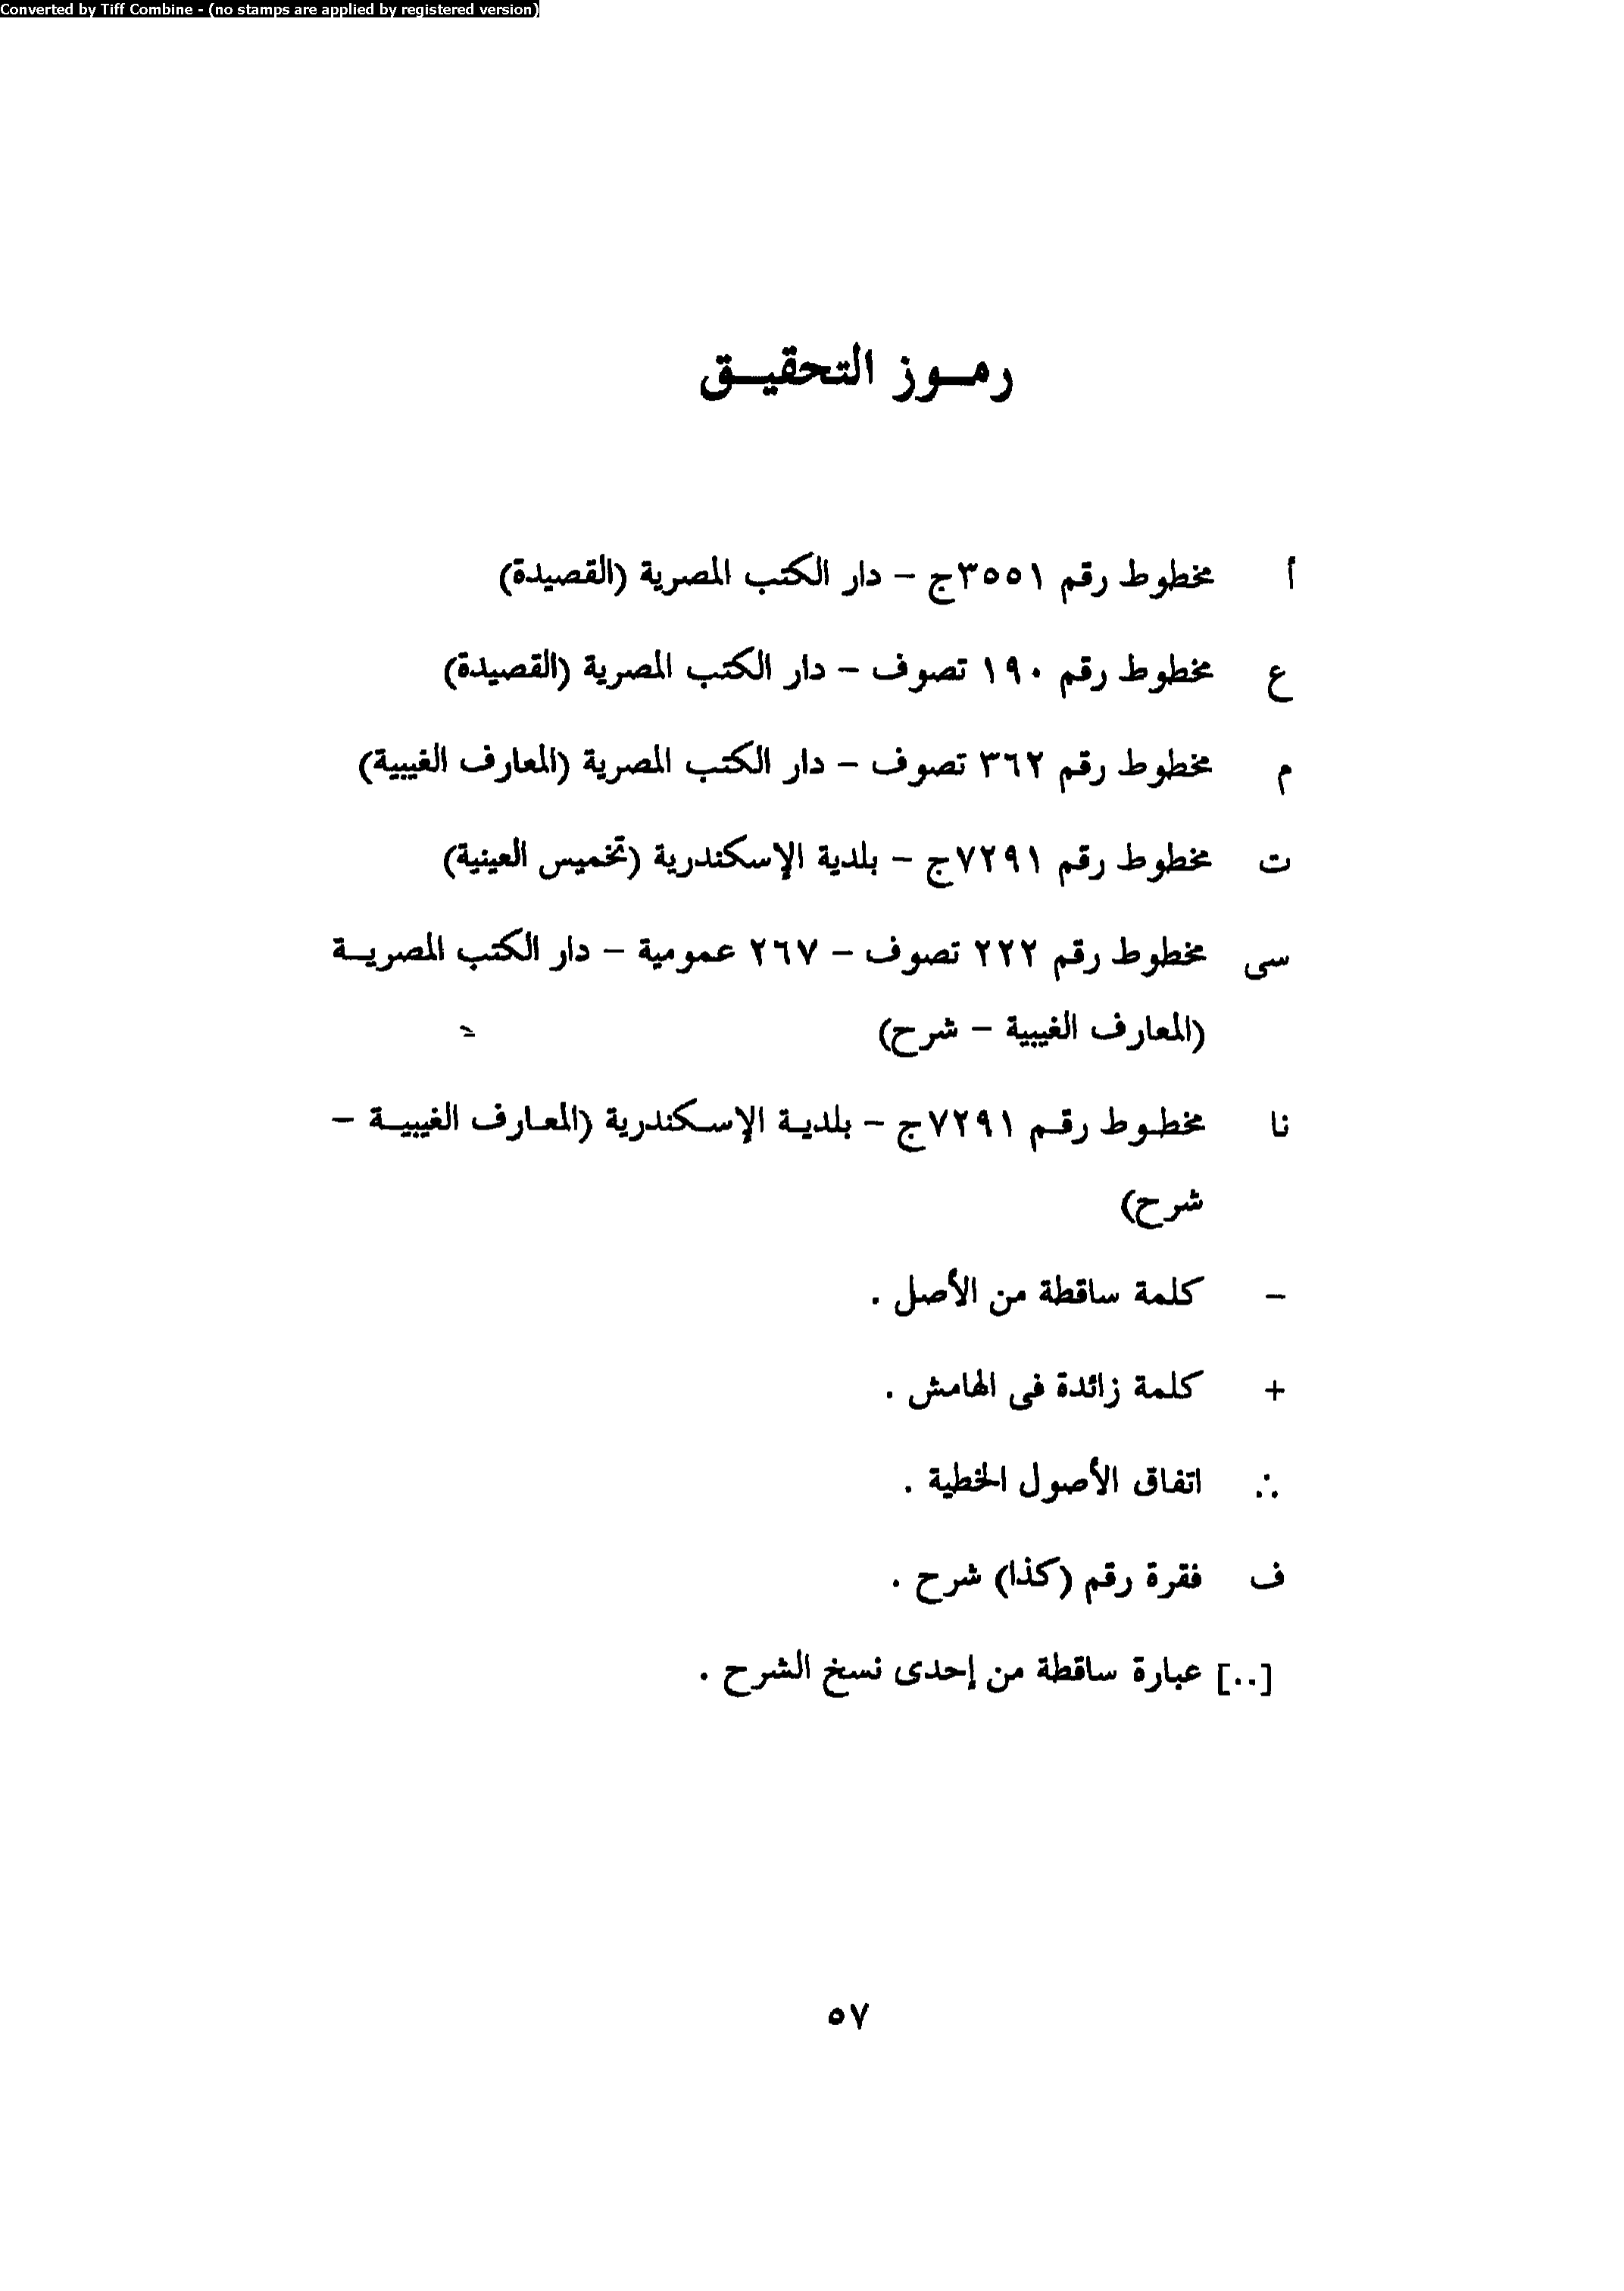 Converted by Tiff Combine - (no stamps are applied by registered version)
رمــوز التحقيــق
أ مخطوط رقم ٣٥٥١ج – دار الكتب المصرية (القصيدة)
ع مخطوط رقم ١٩٠ تصوف – دار الكتب المصرية (القصيدة)
م مخطوط رقم ٣٦٢ تصوف – دار الكتب المصرية (المعارف الغيبية)
ت مخطوط رقم ٧٢٩١ج – بلدية الإسكندرية (تخميس العينية)
سى مخطوط رقم ٢٢٢ تصوف – ٢٦٧ عمومية – دار الكتب المصريــة
(المعارف الغيبية – شرح)
نا مخطـوط رقـم ٧٢٩١ج – بلديـة الإسـكندرية (المعـارف الغيبيــة –
شرح)
– كلمة ساقطة من الأصل .
+ كلمة زائدة فى الهامش .
∴ اتفاق الأصول الخطية .
ف فقرة رقم (كذا) شرح .
[..] عبارة ساقطة من إحدى نسخ الشرح .
٥٧